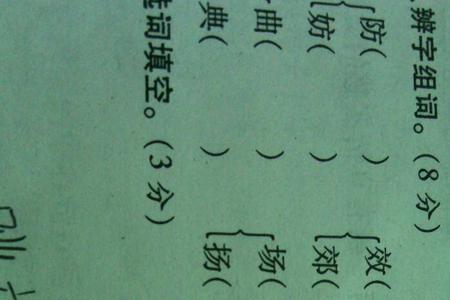 辨字组词。(8分)
防( ) 效(
妨( ) 郊(
曲( ) 场(
典( ) 扬(
词填空。(3分)